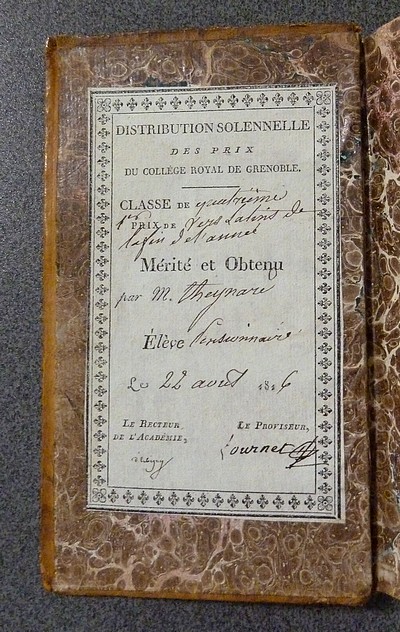 DISTRIBUTION SOLENNELLE
DES PRIX
DU COLLÈGE ROYAL DE GRENOBLE.
CLASSE DE quatrième
1er PRIX DE Vers Latins de
la fin de l'année
Mérité et Obtenu
par M. Theynard
Élève Pensionnaire
Le 22 août 1826
LE RECTEUR DE L'ACADÉMIE,
LE PROVISEUR,
Tournet